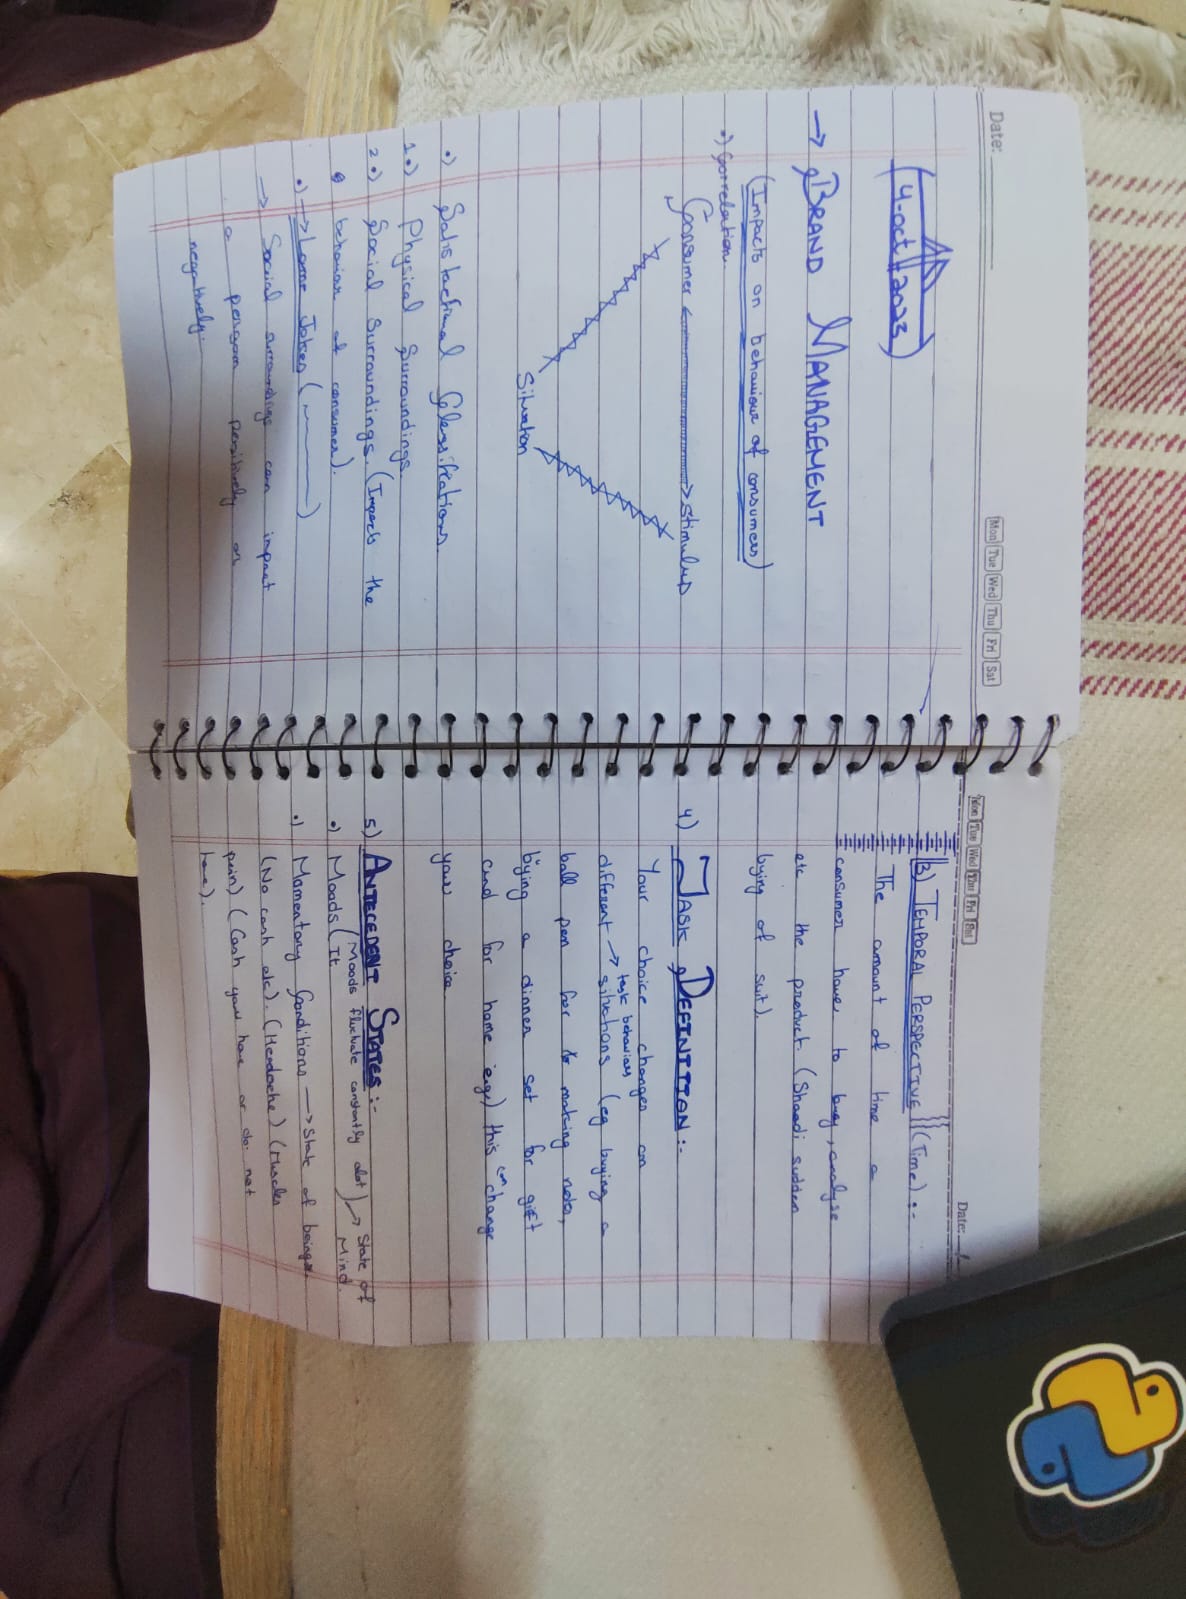 Date:
Mon Tue Wed Thu Fri Sat
4-oct 2023
→ BRAND MANAGEMENT
(Impacts on behaviour of consumers)
•) Correlation
Consumer stimulus
Situation
•) Satisfactional Classifications
1•) Physical Surroundings.
2•) Social Surroundings. (Impacts the
behavior of consumer).
•) → Lame Jokes ( )
→ Social surroundings can impact
a person positively or
negatively.
Mon Tue Wed Thu Fri Sat
Date:
3) TEMPORAL PERSPECTIVE (Time) :-
The amount of time a
consumer have to buy, analyse
etc the product. (Shaadi sudden
bying of suit).
4) TASK DEFINITION :-
Your choice changes on
task behaviors
different → situations (eg buying a
ball pen for making notes,
bying a dinner set for gift
and for home e.g.) this can change
your choice
5) ANTECEDENT STATES :-
•) Moods (Moods fluctuate constantly alot) → State of Mind.
It
•) Momentary Conditions → State of beings.
(No cash etc). (Headache) (Muscles
pain) (Cash you have or do not
have).